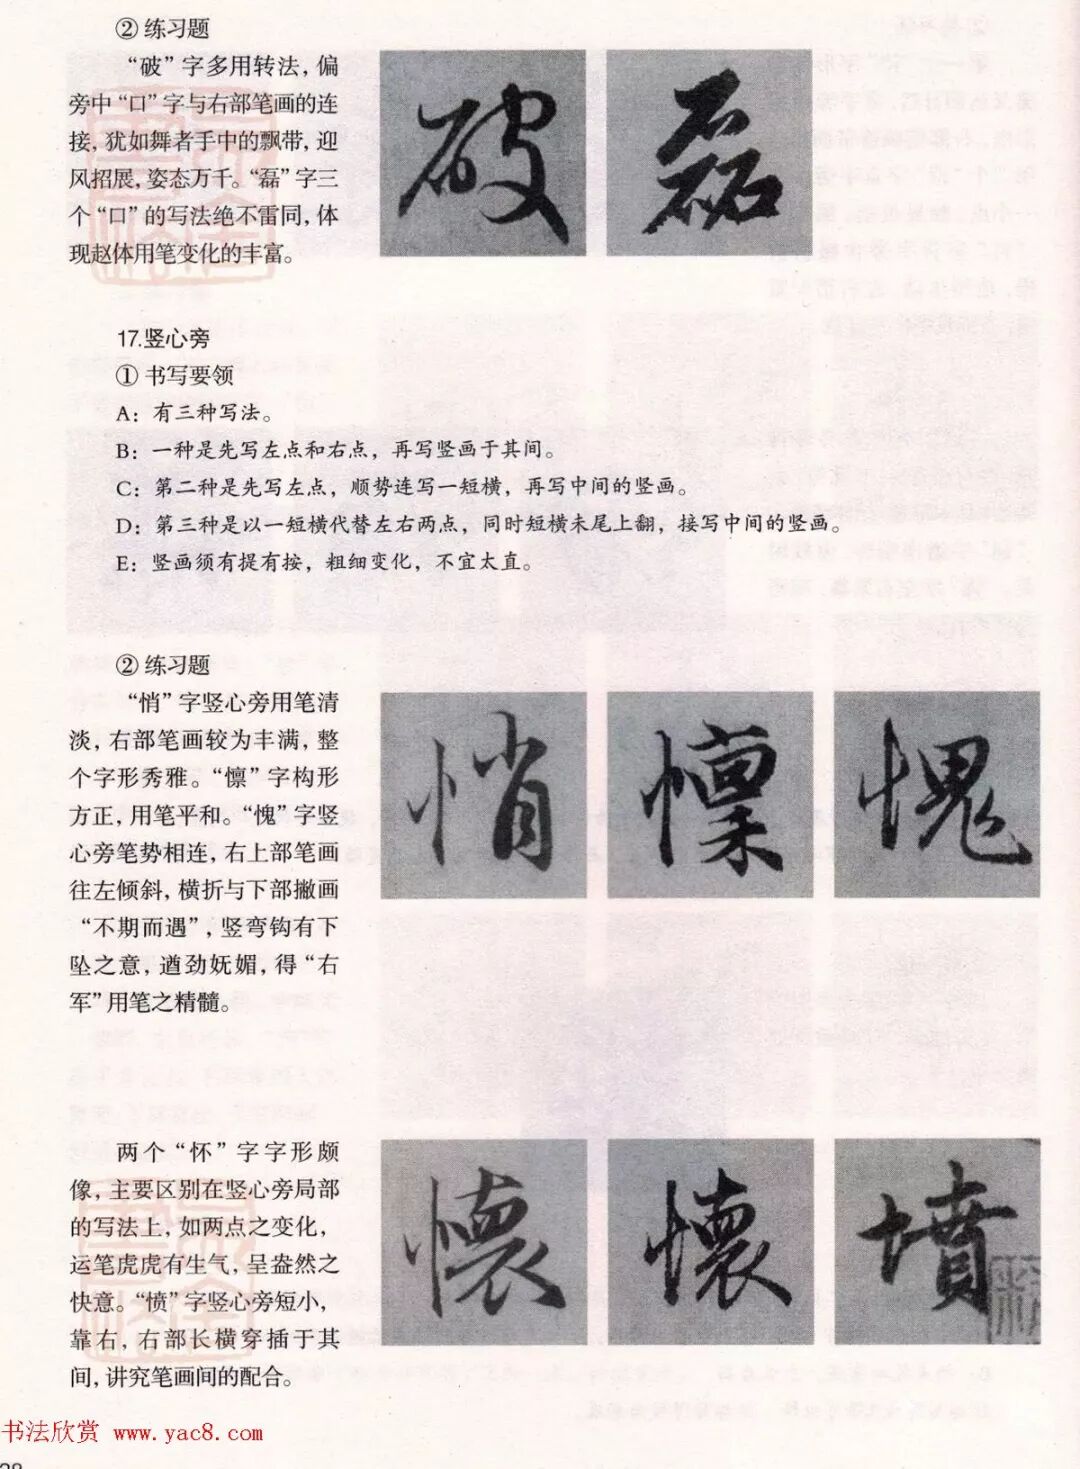 ② 练习题
“破”字多用转法，偏
旁中“口”字与右部笔画的连
接，犹如舞者手中的飘带，迎
风招展，姿态万千。“磊”字三
个“口”的写法绝不雷同，体
现赵体用笔变化的丰富。
破
磊
17.竖心旁
① 书写要领
A：有三种写法。
B：一种是先写左点和右点，再写竖画于其间。
C：第二种是先写左点，顺势连写一短横，再写中间的竖画。
D：第三种是以一短横代替左右两点，同时短横末尾上翻，接写中间的竖画。
E：竖画须有提有按，粗细变化，不宜太直。
② 练习题
“悄”字竖心旁用笔清
淡，右部笔画较为丰满，整
个字形秀雅。“懔”字构形
方正，用笔平和。“愧”字竖
心旁笔势相连，右上部笔画
往左倾斜，横折与下部撇画
“不期而遇”，竖弯钩有下
坠之意，遒劲妩媚，得“右
军”用笔之精髓。
悄
懔
愧
两个“怀”字字形颇
像，主要区别在竖心旁局部
的写法上，如两点之变化，
运笔虎虎有生气，呈盎然之
快意。“愤”字竖心旁短小，
靠右，右部长横穿插于其
间，讲究笔画间的配合。
懷
懷
憤
书法欣赏 www.yac8.com